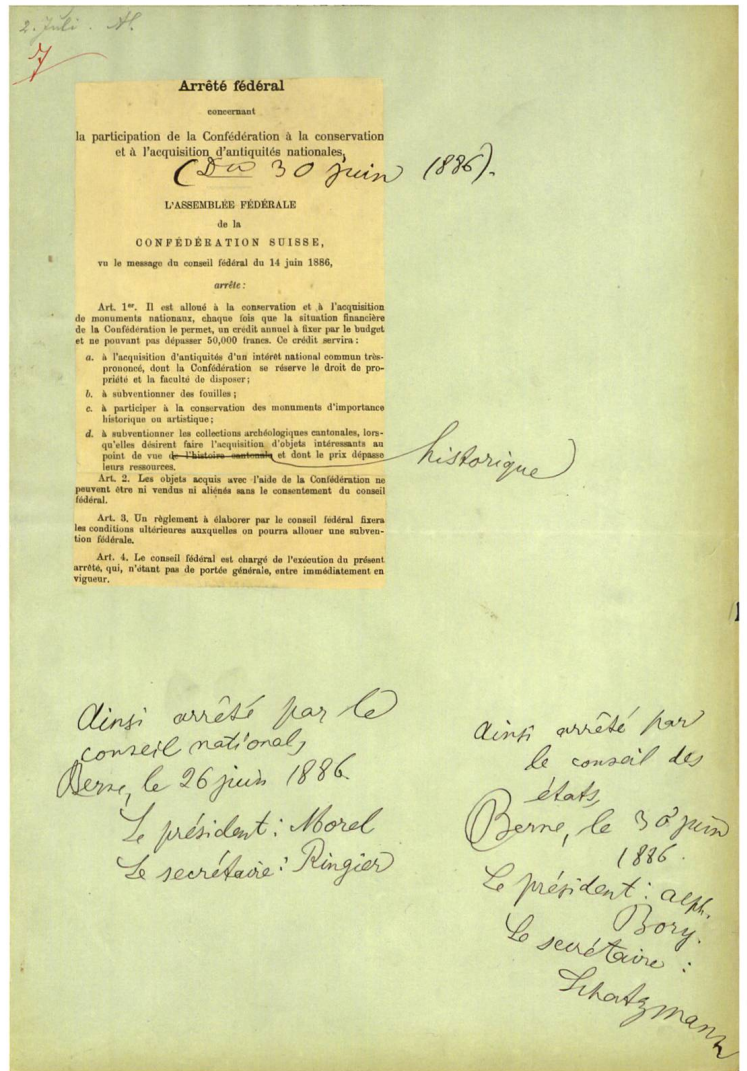 2. Juli. Al.
7
Arrêté fédéral
concernant
la participation de la Confédération à la conservation
et à l'acquisition d'antiquités nationales,
(Du 30 juin 1886).
L'ASSEMBLÉE FÉDÉRALE
de la
CONFÉDÉRATION SUISSE,
vu le message du conseil fédéral du 14 juin 1886,
arrête:
Art. 1er. Il est alloué à la conservation et à l'acquisition
de monuments nationaux, chaque fois que la situation financière
de la Confédération le permet, un crédit annuel à fixer par le budget
et ne pouvant pas dépasser 50,000 francs. Ce crédit servira:
a. à l'acquisition d'antiquités d'un intérêt national commun très-
prononcé, dont la Confédération se réserve le droit de pro-
priété et la faculté de disposer;
b. à subventionner des fouilles;
c. à participer à la conservation des monuments d'importance
historique ou artistique;
d. à subventionner les collections archéologiques cantonales, lors-
qu'elles désirent faire l'acquisition d'objets intéressants au
point de vue de l'histoire cantonale et dont le prix dépasse
historique
leurs ressources.
Art. 2. Les objets acquis avec l'aide de la Confédération ne
peuvent être ni vendus ni aliénés sans le consentement du conseil
fédéral.
Art. 3. Un règlement à élaborer par le conseil fédéral fixera
les conditions ultérieures auxquelles on pourra allouer une subven-
tion fédérale.
Art. 4. Le conseil fédéral est chargé de l'exécution du présent
arrêté, qui, n'étant pas de portée générale, entre immédiatement en
vigueur.
Ainsi arrêté par le
conseil national,
Berne, le 26 juin 1886.
Le président: Morel
Le secrétaire: Ringier
Ainsi arrêté par
le conseil des
états,
Berne, le 30 juin
1886.
Le président: Alph.
Bory.
Le secrétaire:
Schatzmann